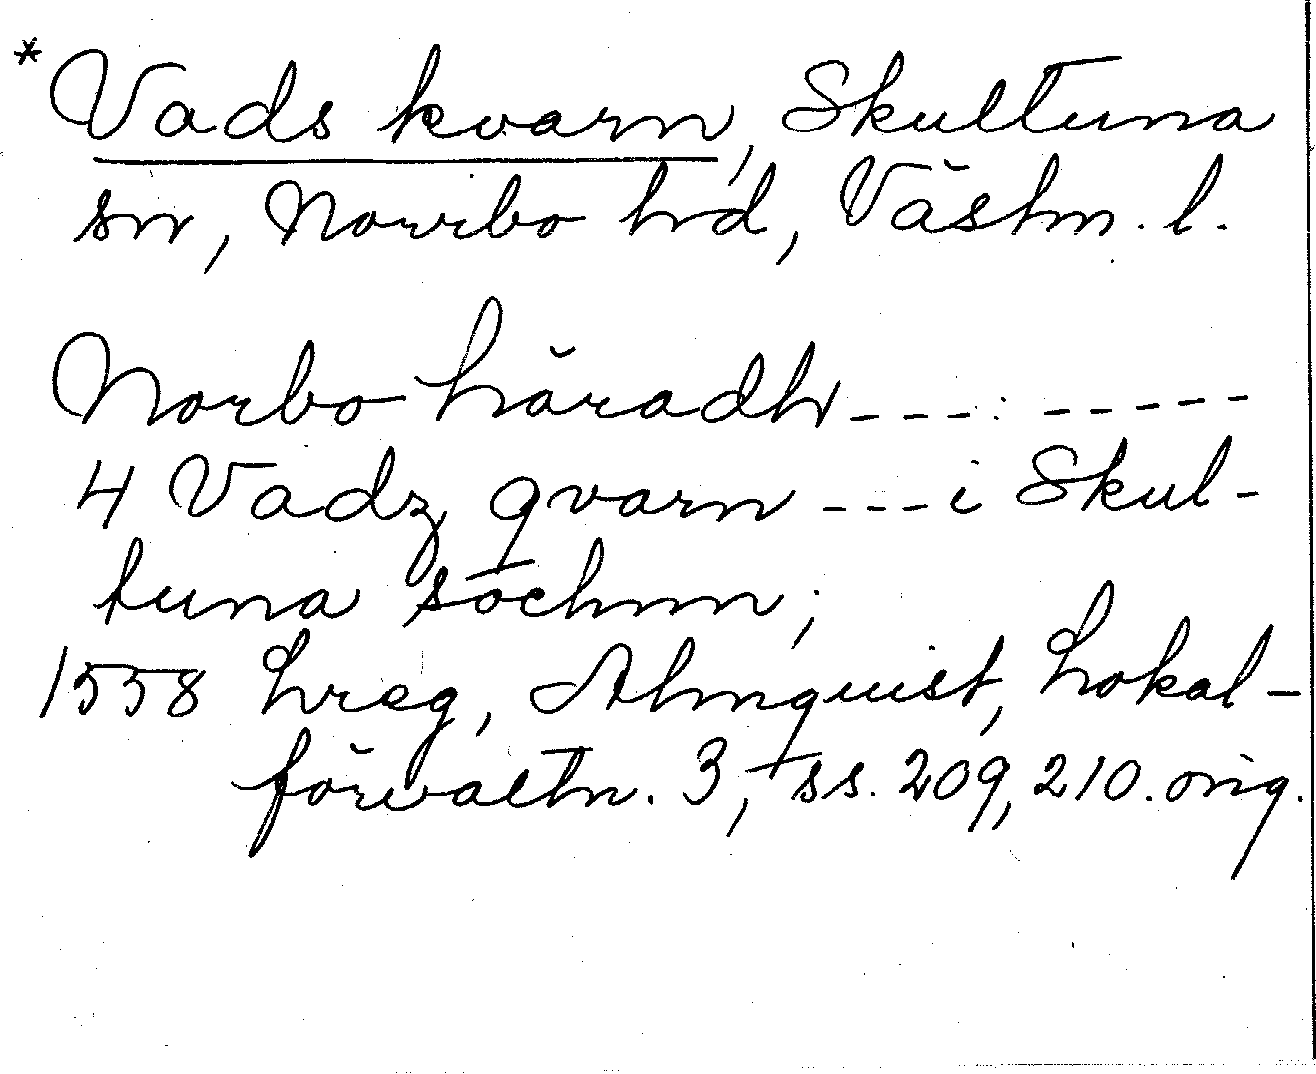 *Vads kvarn, Skultuna
sn, Norrbo hd, Västm. l.
Norbo häradh --- : -----
4 Vadz qvarn --- i Skul-
tuna sochnn;
1558 hreg, Almquist, Lokal-
förvaltn. 3, ss. 209, 210. orig.